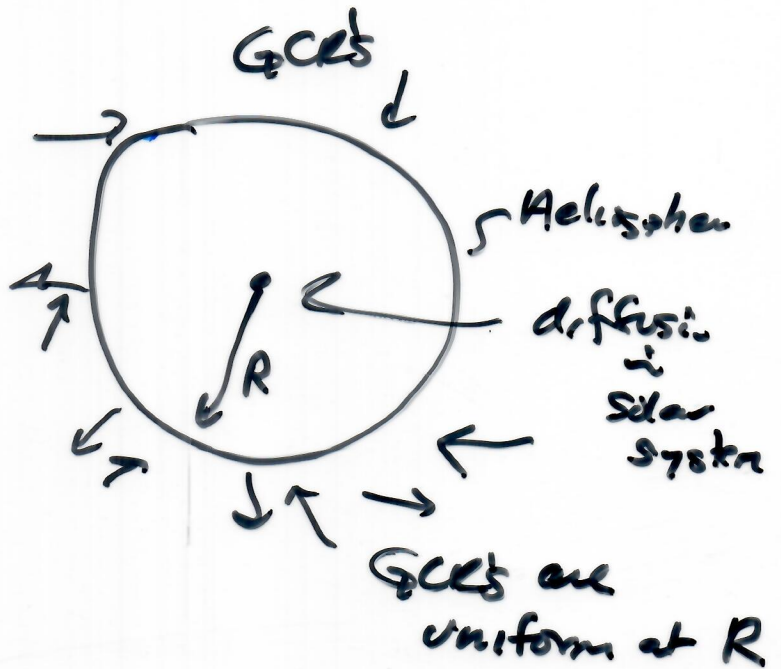 GCR's
Heliosphere
diffusion
in
Solar
System
R
GCR's are
uniform at R